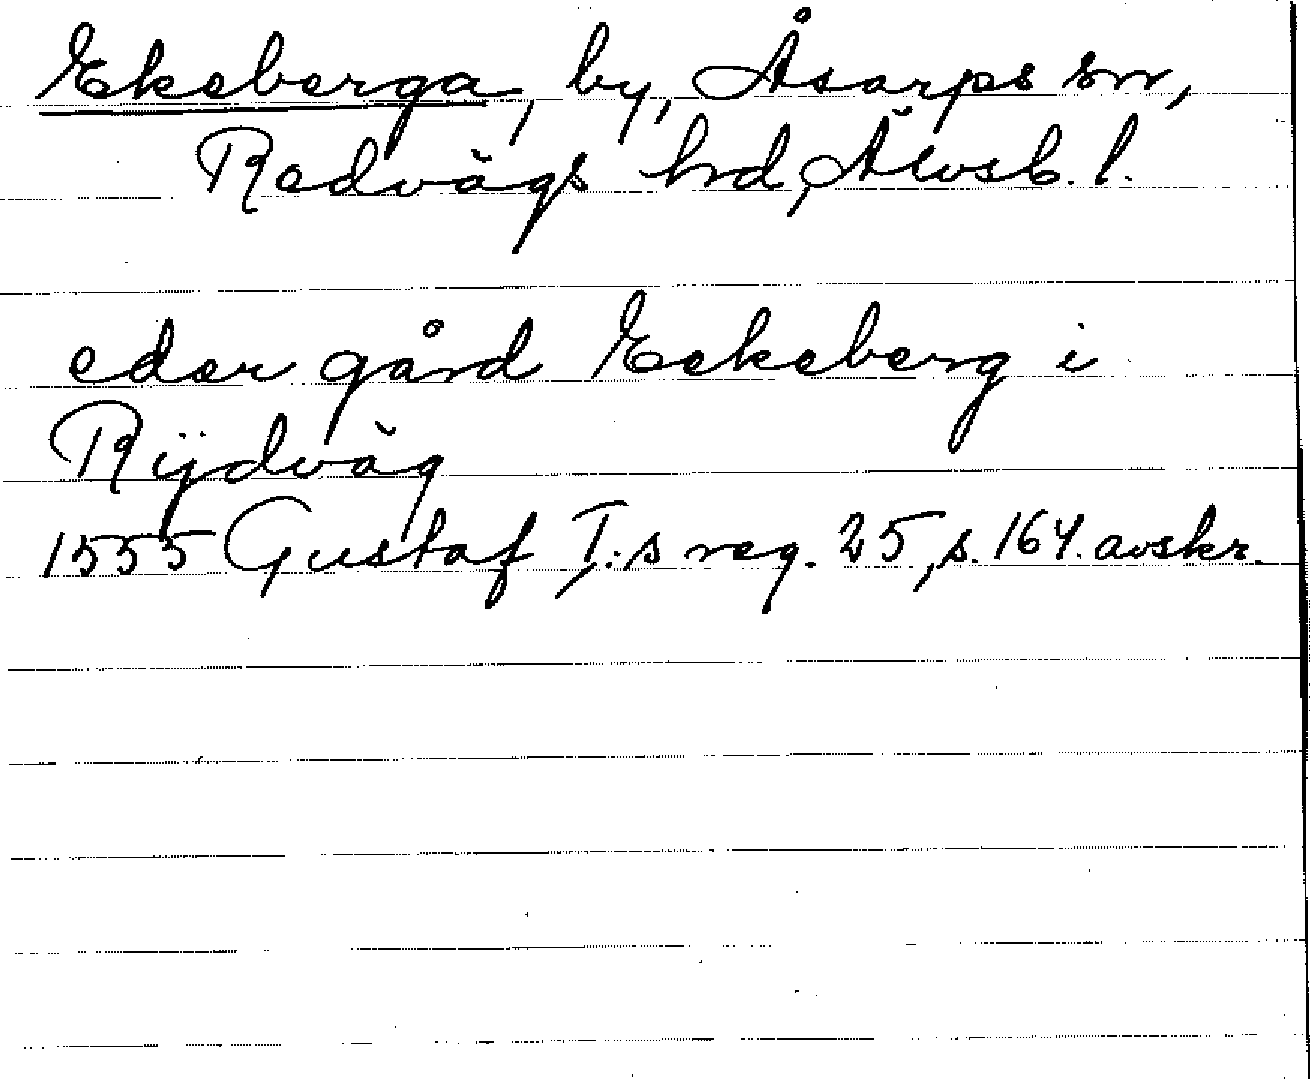 Ekeberga, by, Åsarps sn,
Redvägs hrd, Älvsb. l.
eder gård Eekeberg i
Rÿdväg
1555 Gustaf I:s reg. 25, s. 164. avskr.